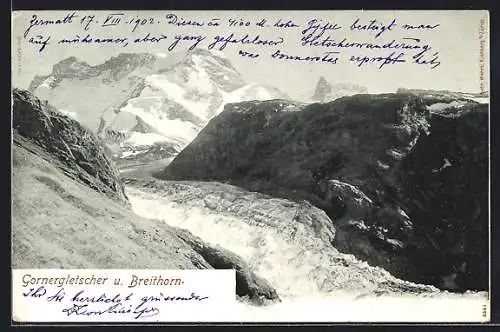 Zermatt 17. VIII. 1902. Diesen ca 4100 M. hohen Gipfel besteigt man
auf mühsamer, aber ganz gefahrloser Gletscherwanderung,
was Donnerstag erprobt hab.
Gornergletscher u. Breithorn.
Ihr Sie herzlichst grüssender